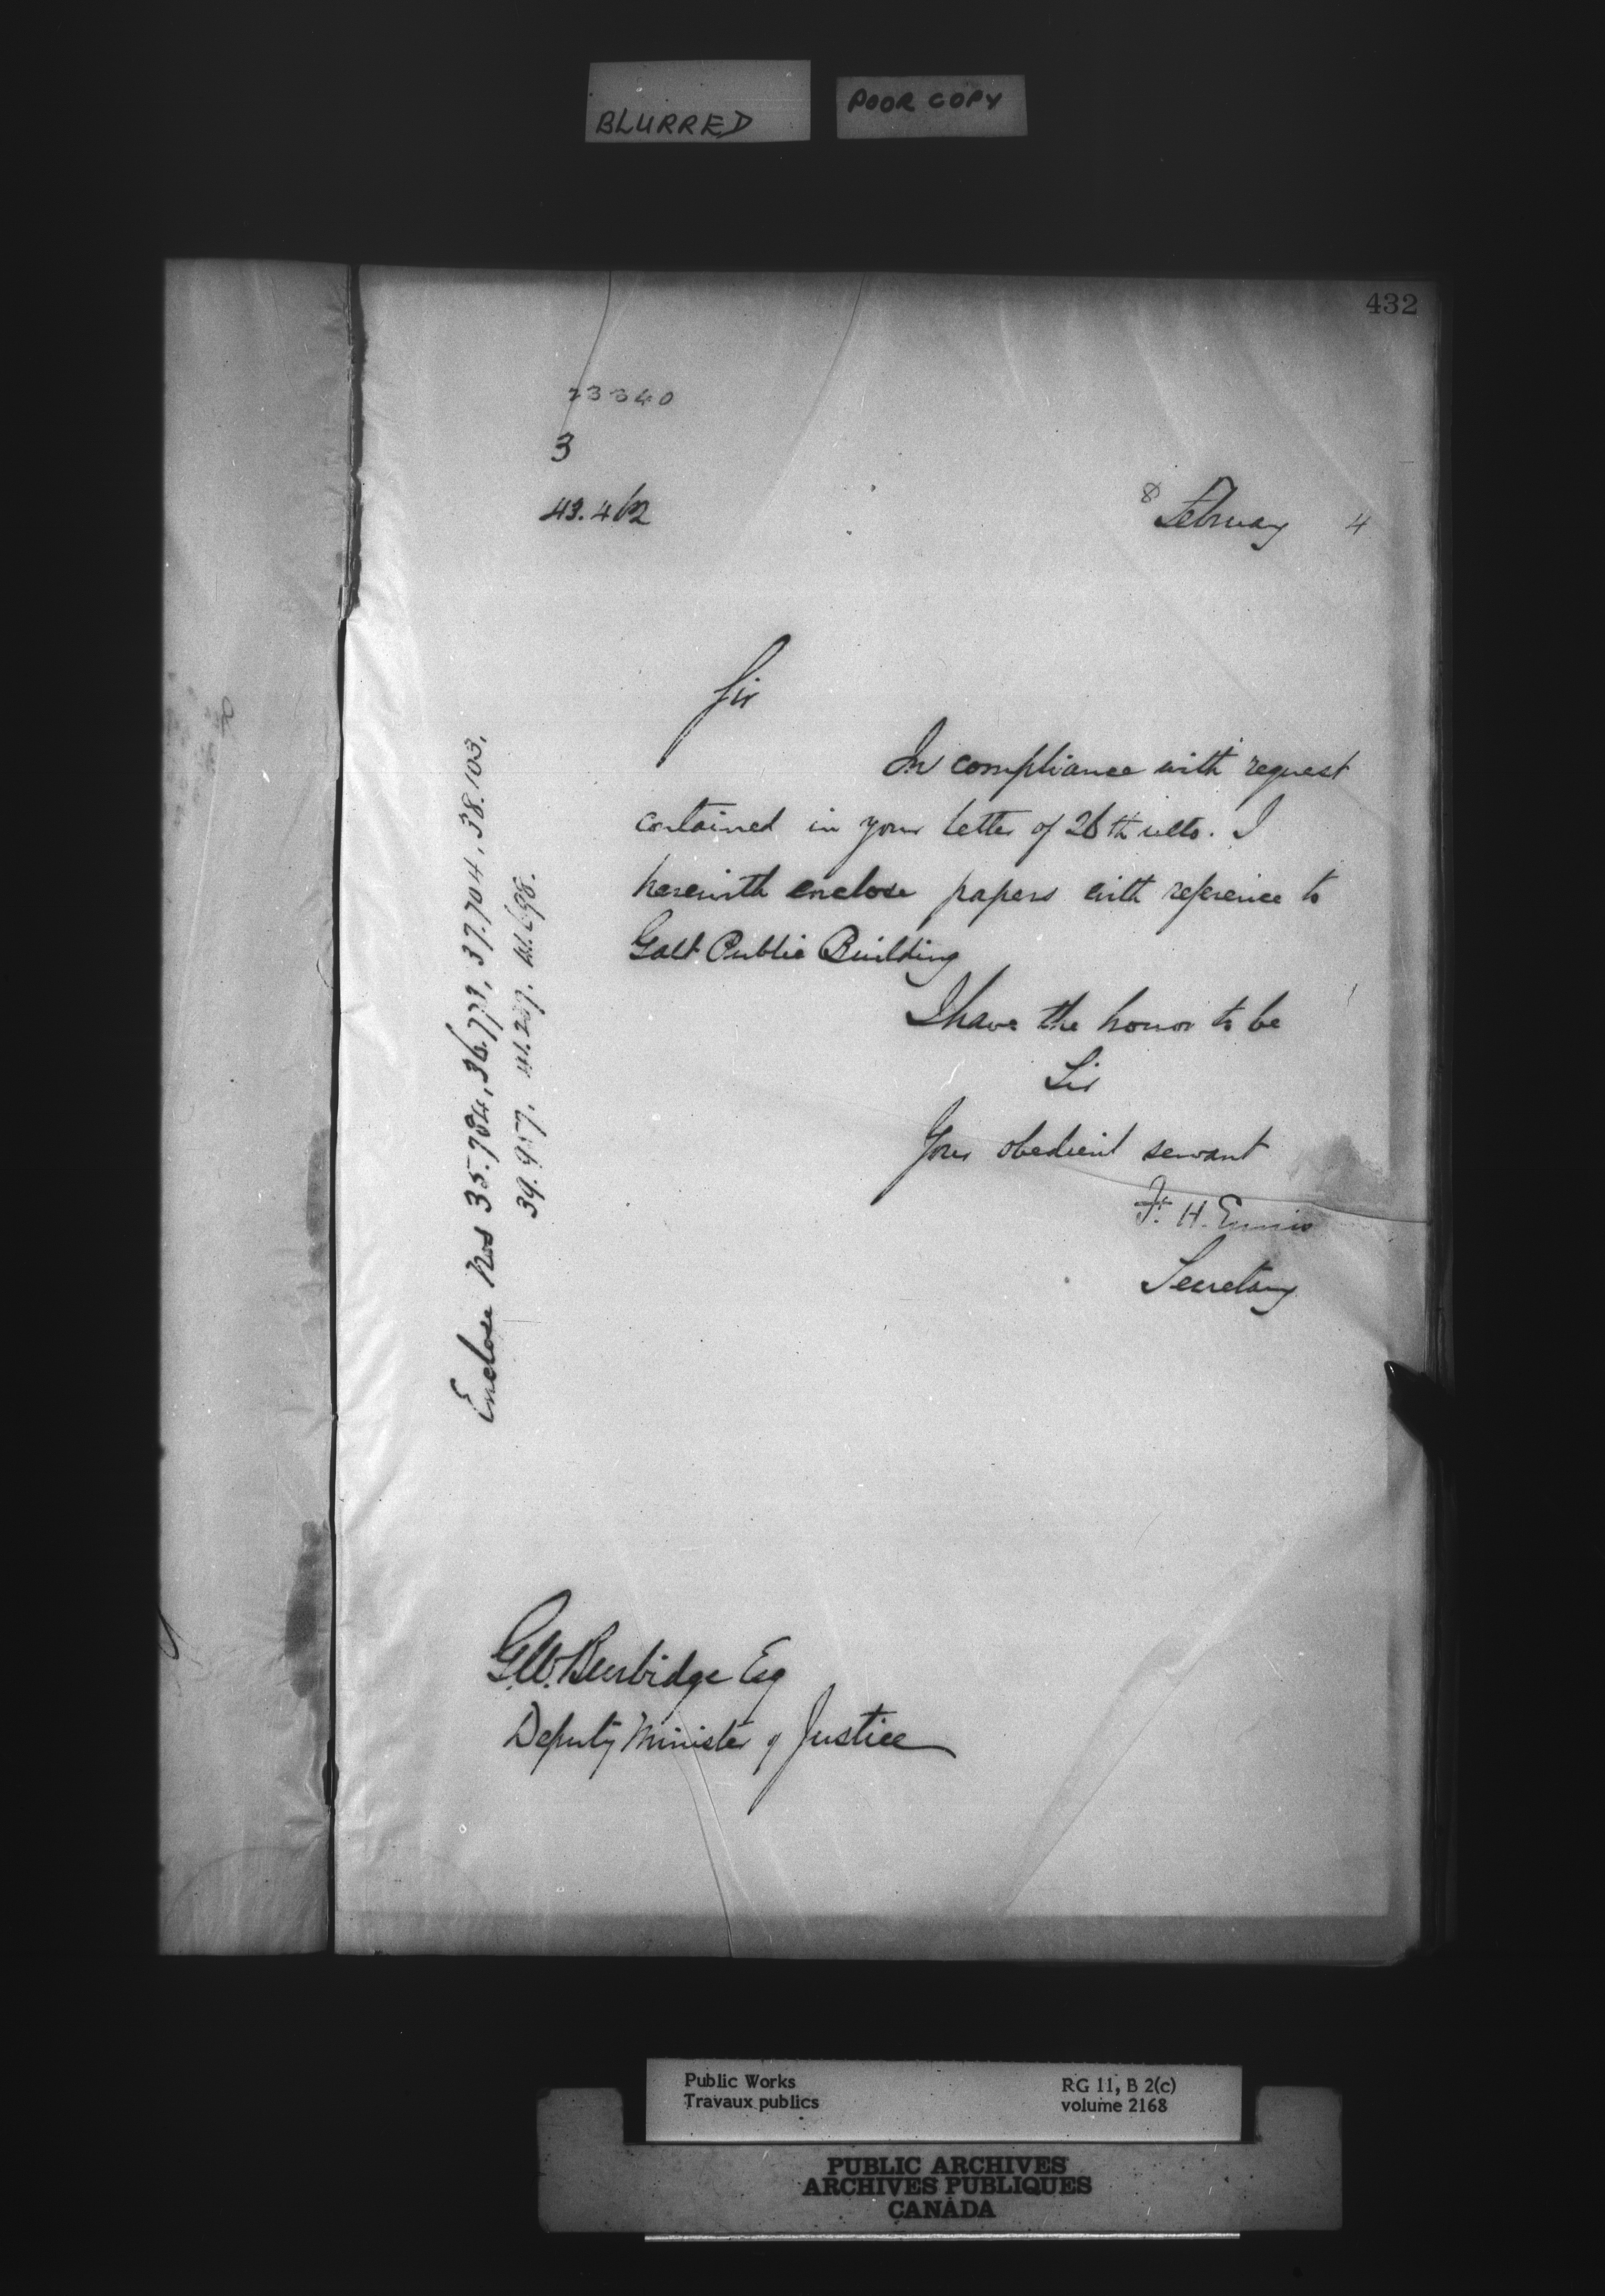 BLURRED
POOR COPY
432
23340
3
43.462
8 February 4
Sir
In compliance with request
contained in your letter of 26th ulto. I
herewith enclose papers with reference to
Galt Public Building
I have the honor to be
Sir
Your obedient servant
F. H. Ennis
Secretary
Enclose Nos 35.784, 36.773, 37.704, 38.103.
39.957. 41.289. 41.698.
G.W. Burbidge Esq
Deputy Minister of Justice
Public Works
Travaux publics
RG 11, B 2(c)
volume 2168
PUBLIC ARCHIVES
ARCHIVES PUBLIQUES
CANADA